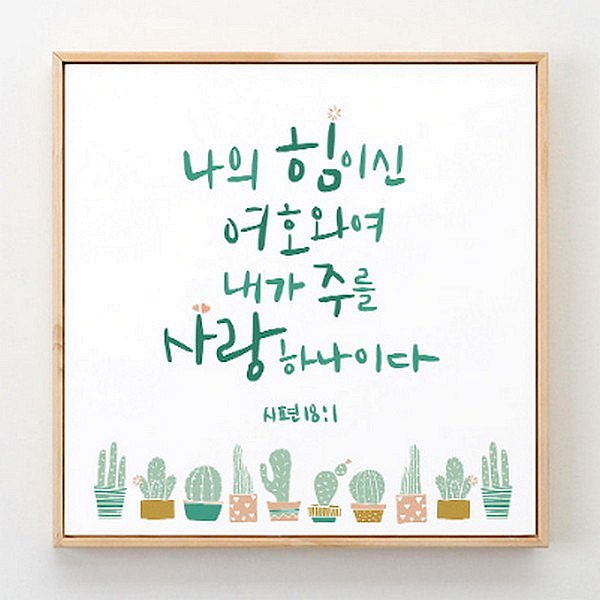 나의 힘이신
여호와여
내가 주를
사랑하나이다
시편 18:1